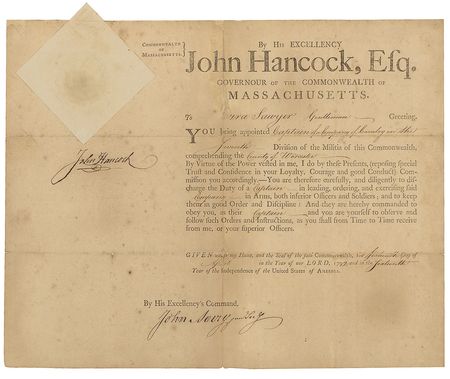 COMMONWEALTH
OF
MASSACHUSETTS.
By HIS EXCELLENCY
John Hancock, Eſq.
GOVERNOUR OF THE COMMONWEALTH OF
MASSACHUSETTS.
To Sawyer Gentleman Greeting,
YOU being appointed Captain of a Company of Cavalry in the
Seventh Diviſion of the Militia of this Commonwealth,
comprehending the County of Worceſter
By Virtue of the Power veſted in me, I do by theſe Preſents, (repoſing ſpecial
Truſt and Confidence in your Loyalty, Courage and good Conduct) Com-
miſſion you accordingly:—You are therefore carefully, and diligently to diſ-
charge the Duty of a Captain in leading, ordering, and exerciſing ſaid
Company in Arms, both inferior Officers and Soldiers; and to keep
them in good Order and Diſcipline: And they are hereby commanded to
obey you, as their Captain and you are yourſelf to obſerve and
follow ſuch Orders and Inſtructions, as you ſhall from Time to Time receive
from me, or your ſuperior Officers.
John Hancock
GIVEN under my Hand, and the Seal of the ſaid Commonwealth, the Day of
in the Year of our LORD, 179 and in the Sixteenth
Year of the Independence of the United States of AMERICA.
By His Excellency's Command.
John Avery jun. Sec'y